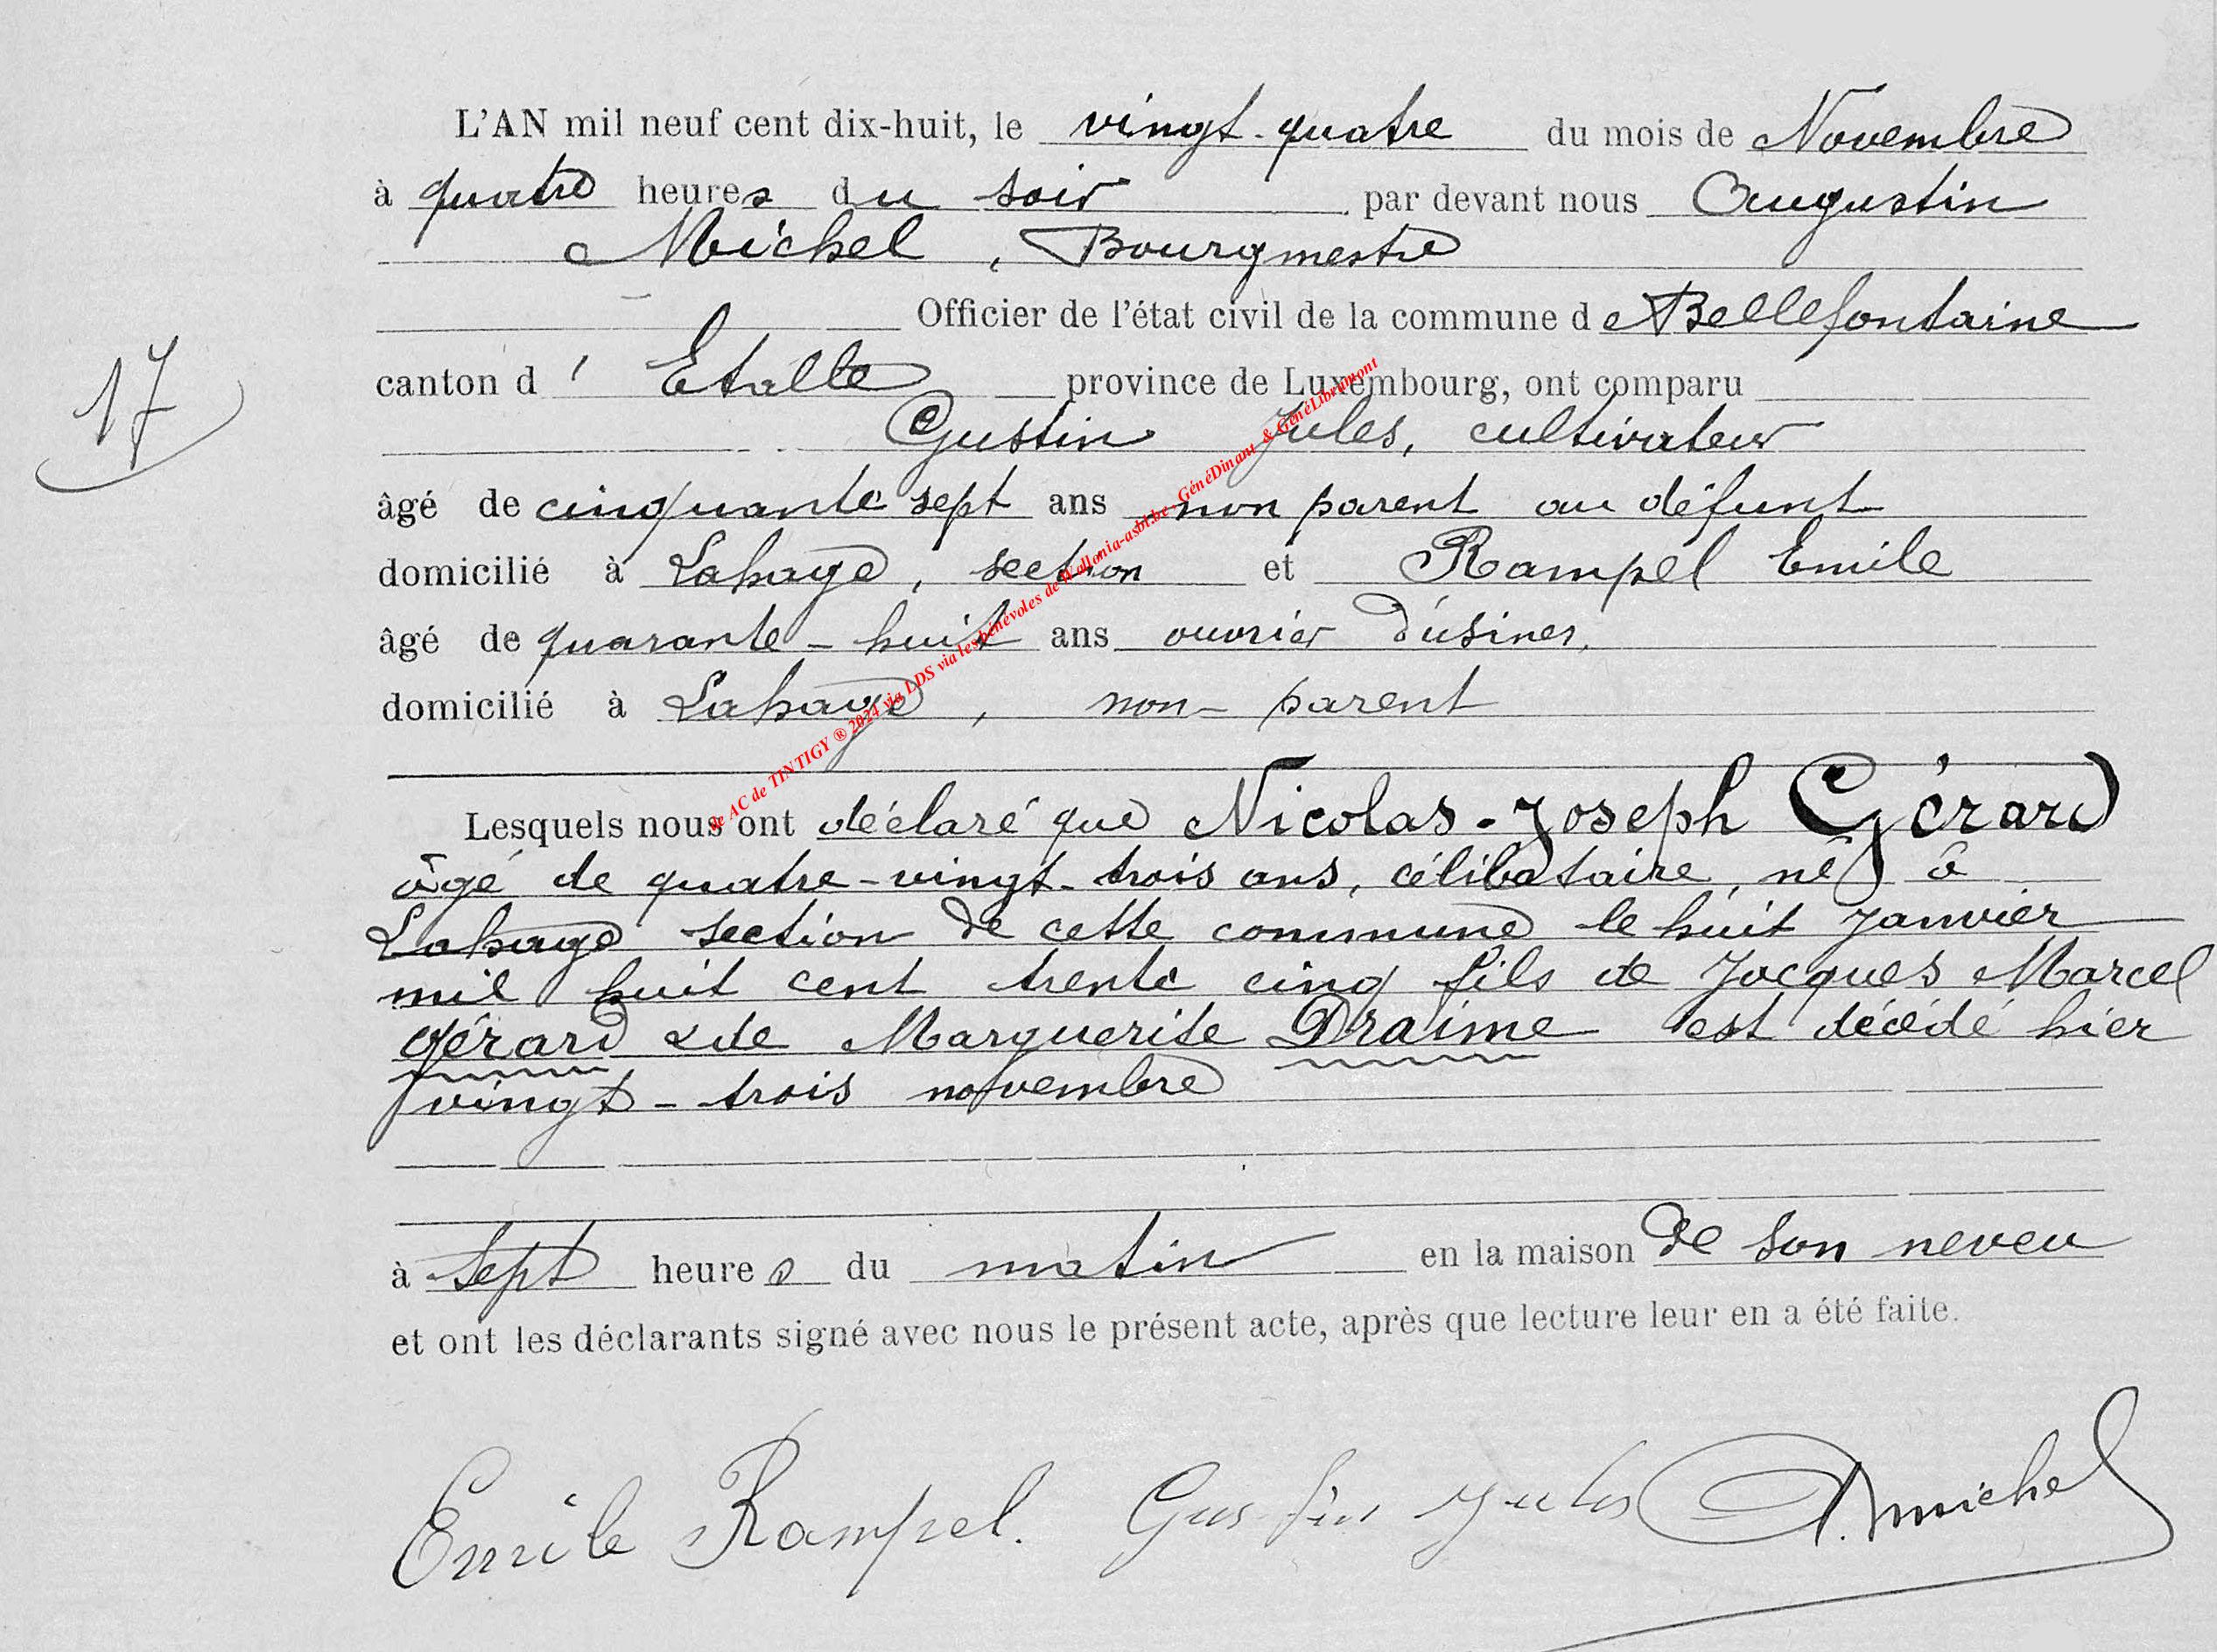 L'AN mil neuf cent dix-huit, le vingt-quatre du mois de Novembre
à quatre heures du soir par devant nous Augustin
Michel, Bourgmestre
Officier de l'état civil de la commune de Bellefontaine
17
canton d' Etalle province de Luxembourg, ont comparu
Gustin Jules, cultivateur
âgé de cinquante sept ans non parent au défunt
domicilié à Lahage, section et Rampel Emile
âgé de quarante-huit ans ouvrier d'usines.
domicilié à Lahage, non-parent
Lesquels nous ont déclaré que Nicolas-Joseph Gérard
âgé de quatre-vingt-trois ans, célibataire, né à
Lahage section de cette commune le huit Janvier
mil huit cent trente cinq fils de Jacques Marcel
Gérard & de Marguerite Draime est décédé hier
vingt-trois novembre
à sept heures du matin en la maison de son neveu
et ont les déclarants signé avec nous le présent acte, après que lecture leur en a été faite.
Emile Rampel. Gustin Jules A. Michel
AC de TINTIGY ® 2024 via LDS via les bénévoles de Wallonia-asbl.be, GénéDinant & GénéLibramont